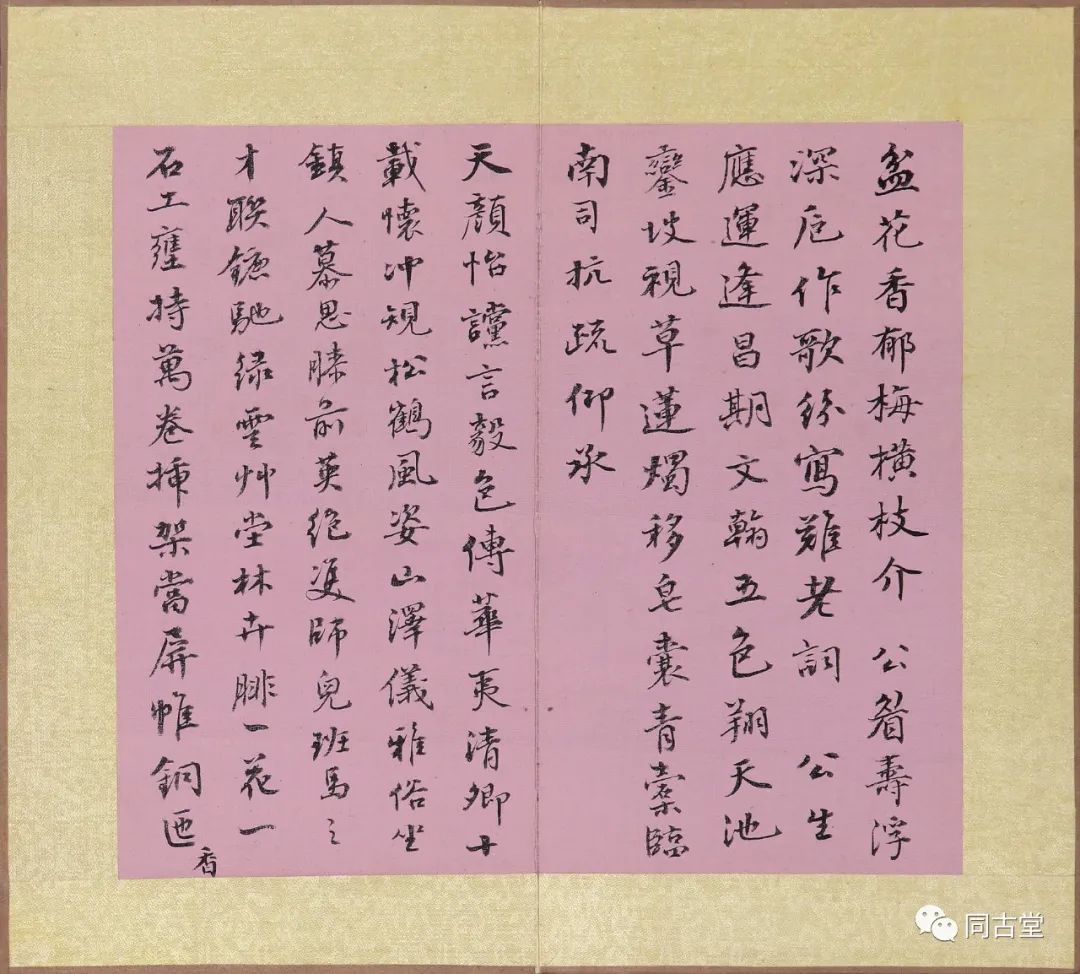 盆花香郁梅橫枝介 公眉壽浮
深卮作歌 寫難老詞 公生
應運逢昌期文翰五色翔天池
鑾坡視草蓮燭移皂囊青橐臨
南司抗疏仰承
天顏怡讜言毅色傳華夷清卿十
載懷冲規松鶴風姿山澤儀雅俗坐
鎮人慕思膝前英絶 師兒班馬之
才聯鑣馳綠雲艸堂林卉腓一花一
石土壅持萬卷插架當屏帷銅匜
香
同古堂